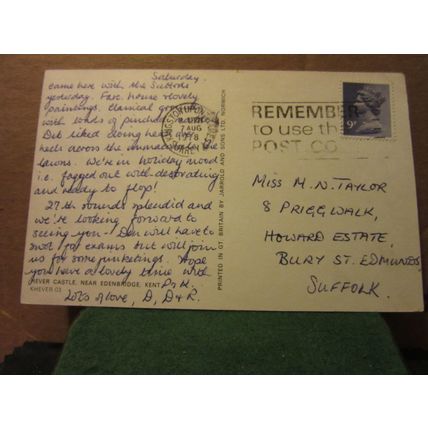 Saturday.
Came here with the Suttons
yesterday. Fasc. house & lovely
paintings. Classical
with loads of pinched
Deb liked doing head over
heels across the immaculate
lawns. We're in holiday mood
i.e. fagged out with decorating
and ready to flop!
27th sounds splendid and
we're looking forward to
seeing you. Den will have to
swot for exams but will join
us for some junketings. Hope
you have a lovely time with
Lots of love, D, D & R.
HEVER CASTLE, NEAR EDENBRIDGE, KENT
KHEVER 03
PRINTED IN GT BRITAIN BY JARROLD AND SONS LTD, NORWICH
KINGSTON UPON
7 AUG
1978
REMEMBER
to use the
POST CO
9
MISS M. N. TAYLOR
8 PRIGG WALK,
HOWARD ESTATE,
BURY ST. EDMUNDS,
SUFFOLK.